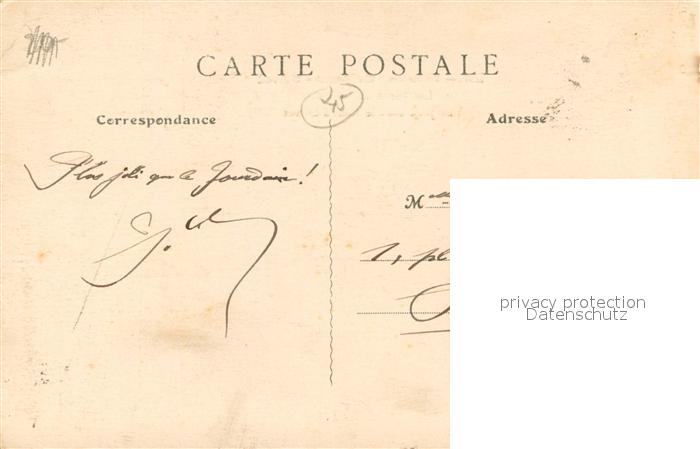 CARTE POSTALE
45
Correspondance
Adresse
Plus joli que le Jourdain !
M
1, pl
privacy protection
Datenschutz